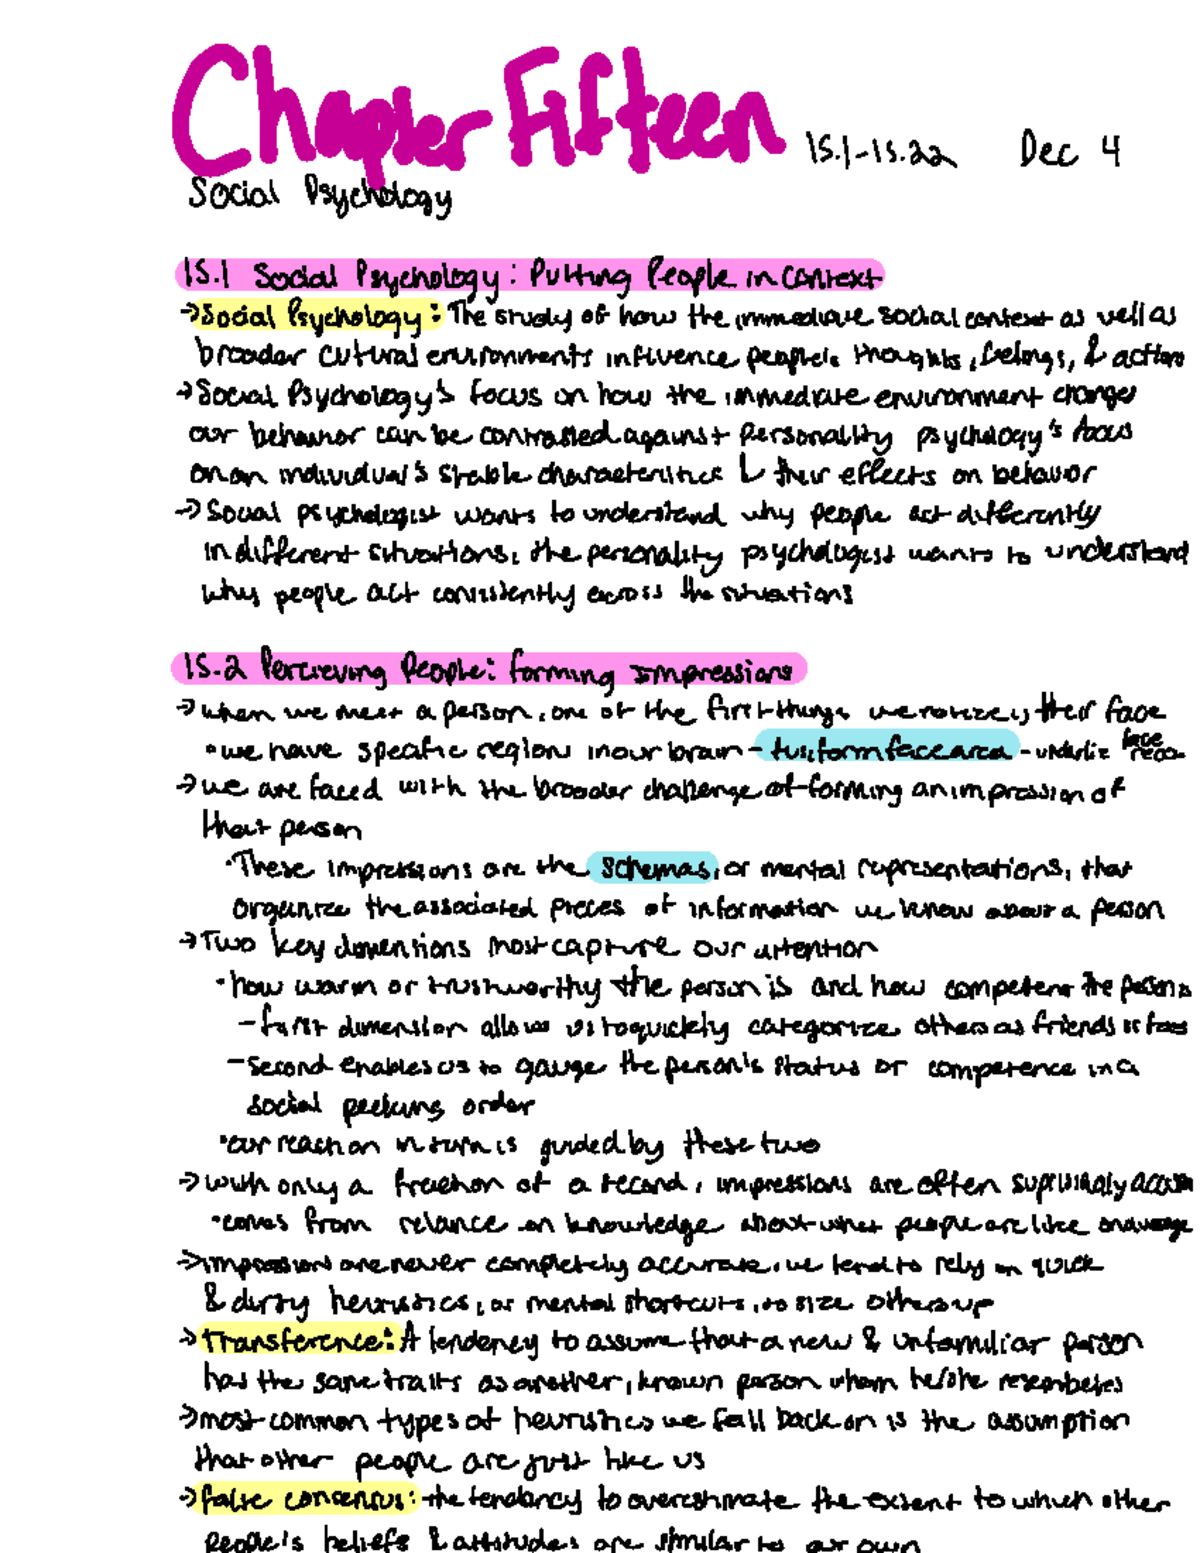 Chapter Fifteen 15.1-15.22 Dec 4
Social Psychology
15.1 Social Psychology: Putting People in Context
→Social Psychology: The study of how the immediate social context as well as
broader cutural environments influence people's thoughts, feelings, & actions
→Social Psychology's focus on how the immediate environment changes
our behavior can be contrasted against personality psychology's focus
on an individual's stable characteristics & their effects on behavior
→Social psychologist wants to understand why people act differently
in different situations, the personality psychologist wants to understand
why people act consistently across the situations
15.2 Percieving People: forming Impressions
→when we meet a person, one of the first things we notice is their face
•we have specific region in our brain - fusiform face area - underlie face reco-
→we are faced with the broader challenge of forming an impression of
that person
•These impressions are the schemas, or mental representations, that
organize the associated pieces of information we know about a person
→Two key dimensions most capture our attention
•how warm or trustworthy the person is and how competent the person is
-first dimension allow us to quickly categorize others as friends or foes
-Second enables us to gauge the person's status or competence in a
social pecking order
•our reaction in turn is guided by these two
→with only a fraction of a second, impressions are often suprisingly
•comes from relance on knowledge about what people are like on
→impressions are never completely accurate, we tend to rely on quick
& dirty heuristics, or mental shortcuts, to size others up
→Transference: A tendency to assume that a new & unfamiliar person
has the same traits as another, known person whom he/she resembeles
→most common types of heuristics we fall back on is the assumption
that other people are just like us
→false consensus: the tendancy to overestimate the extent to which other
people's beliefs & attitudes are similar to our own